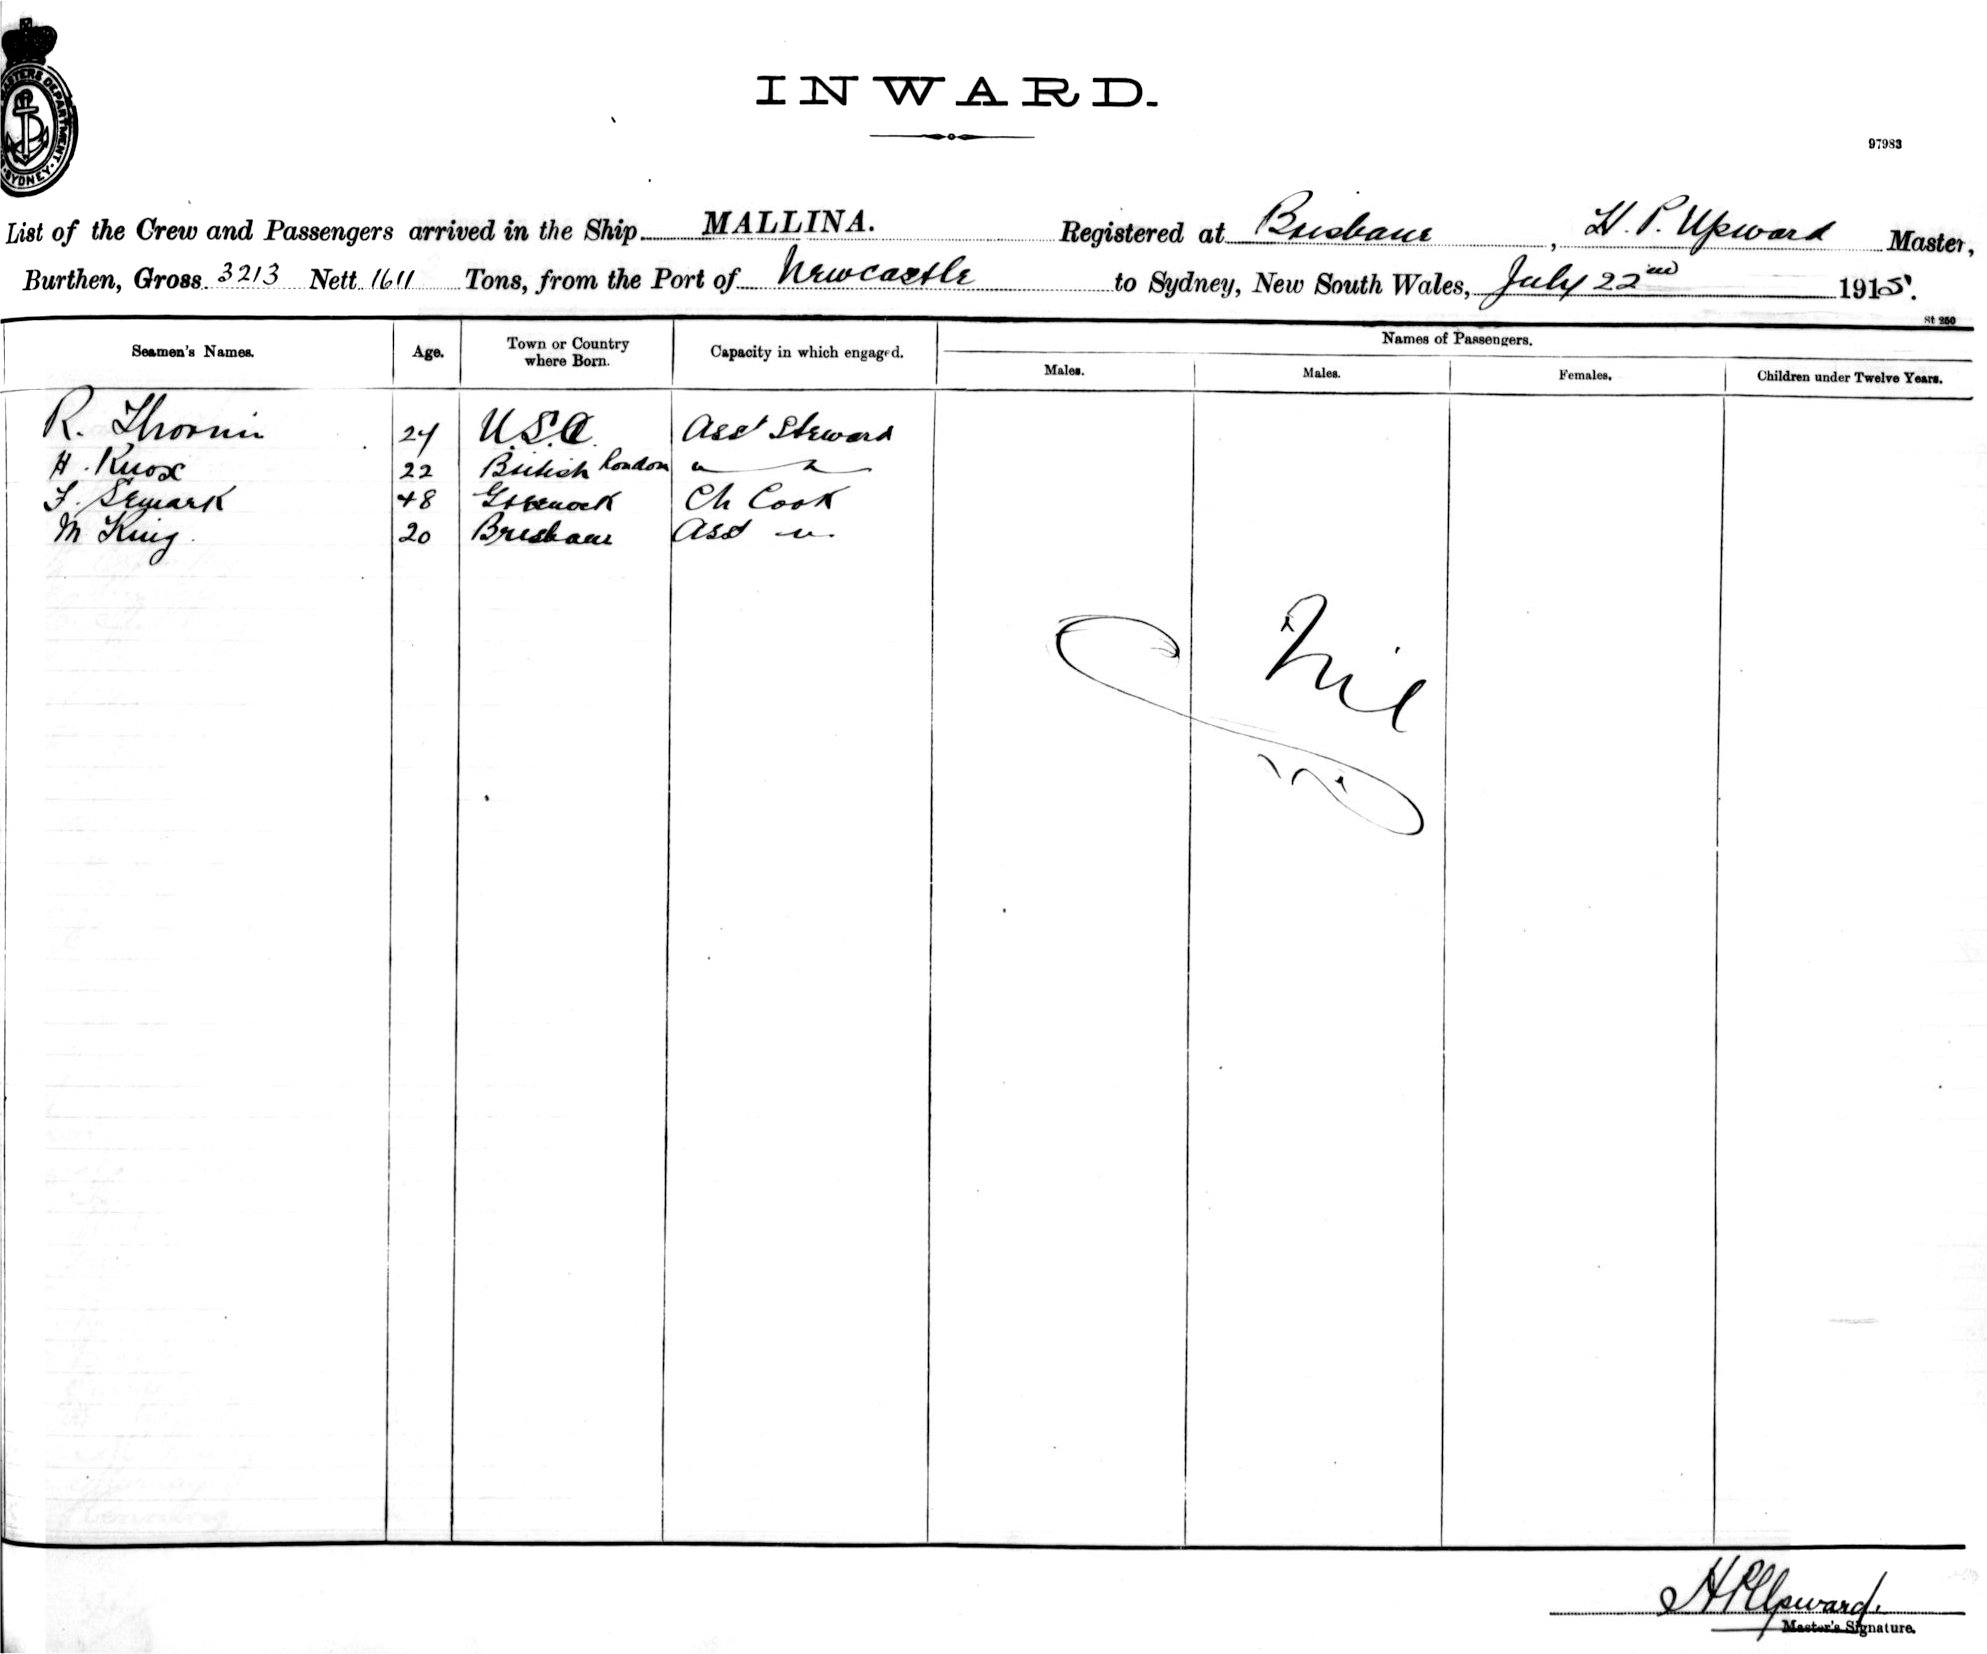 MASTERS DEPARTMENT SYDNEY
INWARD.
97983
List of the Crew and Passengers arrived in the Ship MALLINA. Registered at Brisbane, H. P. Upward Master,
Burthen, Gross 3213 Nett 1611 Tons, from the Port of Newcastle to Sydney, New South Wales, July 22nd 1915.
St 250
Seamen's Names. Age. Town or Country where Born. Capacity in which engaged. Names of Passengers.
Males. Males. Females. Children under Twelve Years.
R. 24 U.S.A. Asst Steward
H. Knox 22 British London " "
F. Semark 48 Greenock Ch Cook
M King. 20 Brisbane Asst "
Nil
H P Upward.
Master's Signature.